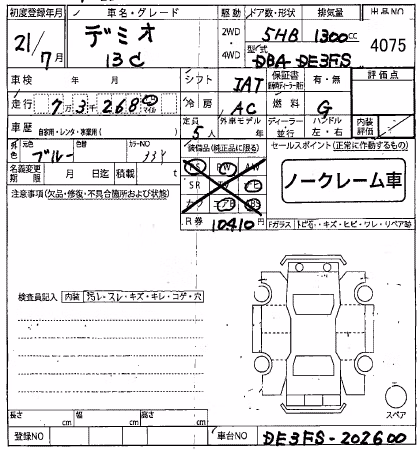 初度登録年月 車名・グレード 駆動 ドア数・形状 排気量 出品NO
21/7 デミオ 13C 2WD・4WD 5HB 1300cc 4075
型式 DBA-DE3FS
車検 年 月 シフト IAT 保証書 有・無 評価点
走行 7万3千268 km マイル 冷房 AC 燃料 G
車歴 自家用・レンタ・事業用( ) 定員 5人 外車モデル 年 ディーラー・並行 ハンドル 左・右 内装評価
元色 ブルー 色替 カラーNO 334 装備品(純正品に限る) セールスポイント(正常に作動するもの)
PS PW AW
名義変更期限 月 日迄 積載 t SR TV ナビ ノークレーム車
注意事項(欠品・修復・不具合箇所および状態) カワ エアB ABS
R券 10410円 Fガラス トビ石・キズ・ヒビ・ワレ・リペア跡
検査員記入 内装 汚レ・スレ・キズ・キレ・コゲ・穴
スペア
長さ cm 幅 cm 高さ cm
登録NO 車台NO DE3FS-202600